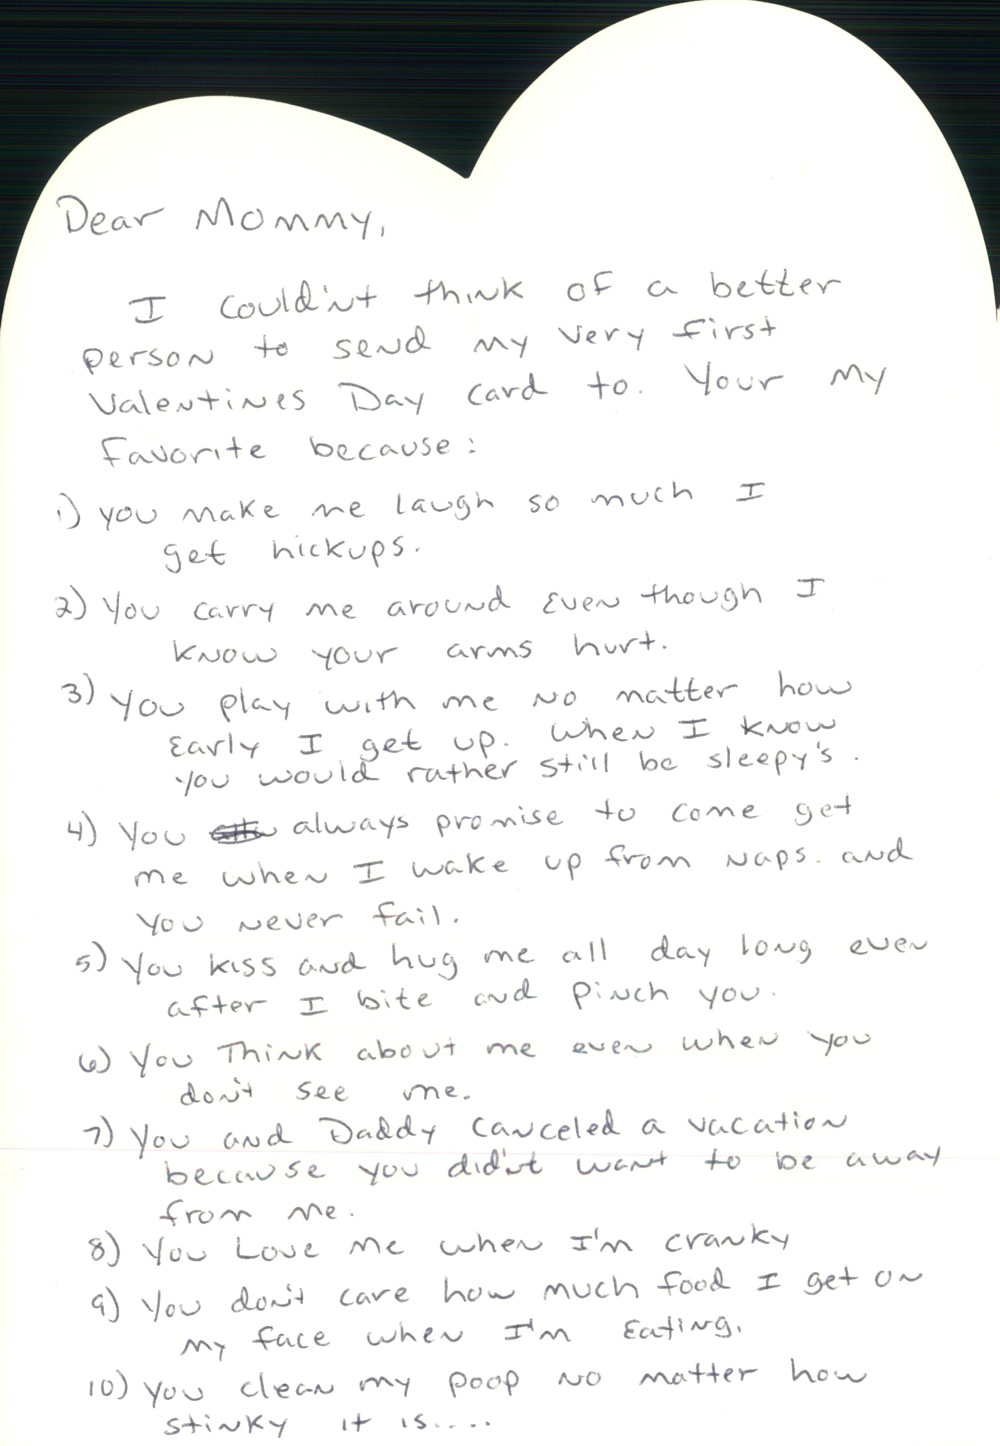 Dear Mommy,
I could'nt think of a better
person to send my very first
Valentines Day card to. Your my
favorite because:
1) you make me laugh so much I
get hickups.
2) You carry me around even though I
know your arms hurt.
3) You play with me no matter how
early I get up. When I know
you would rather still be sleepy's.
4) You always promise to come get
me when I wake up from naps. and
you never fail.
5) You kiss and hug me all day long even
after I bite and pinch you.
6) You Think about me even when you
don't see me.
7) You and Daddy canceled a vacation
because you did'nt want to be away
from me.
8) You Love me when I'm cranky
9) You don't care how much food I get on
my face when I'm eating.
10) you clean my poop no matter how
stinky it is....